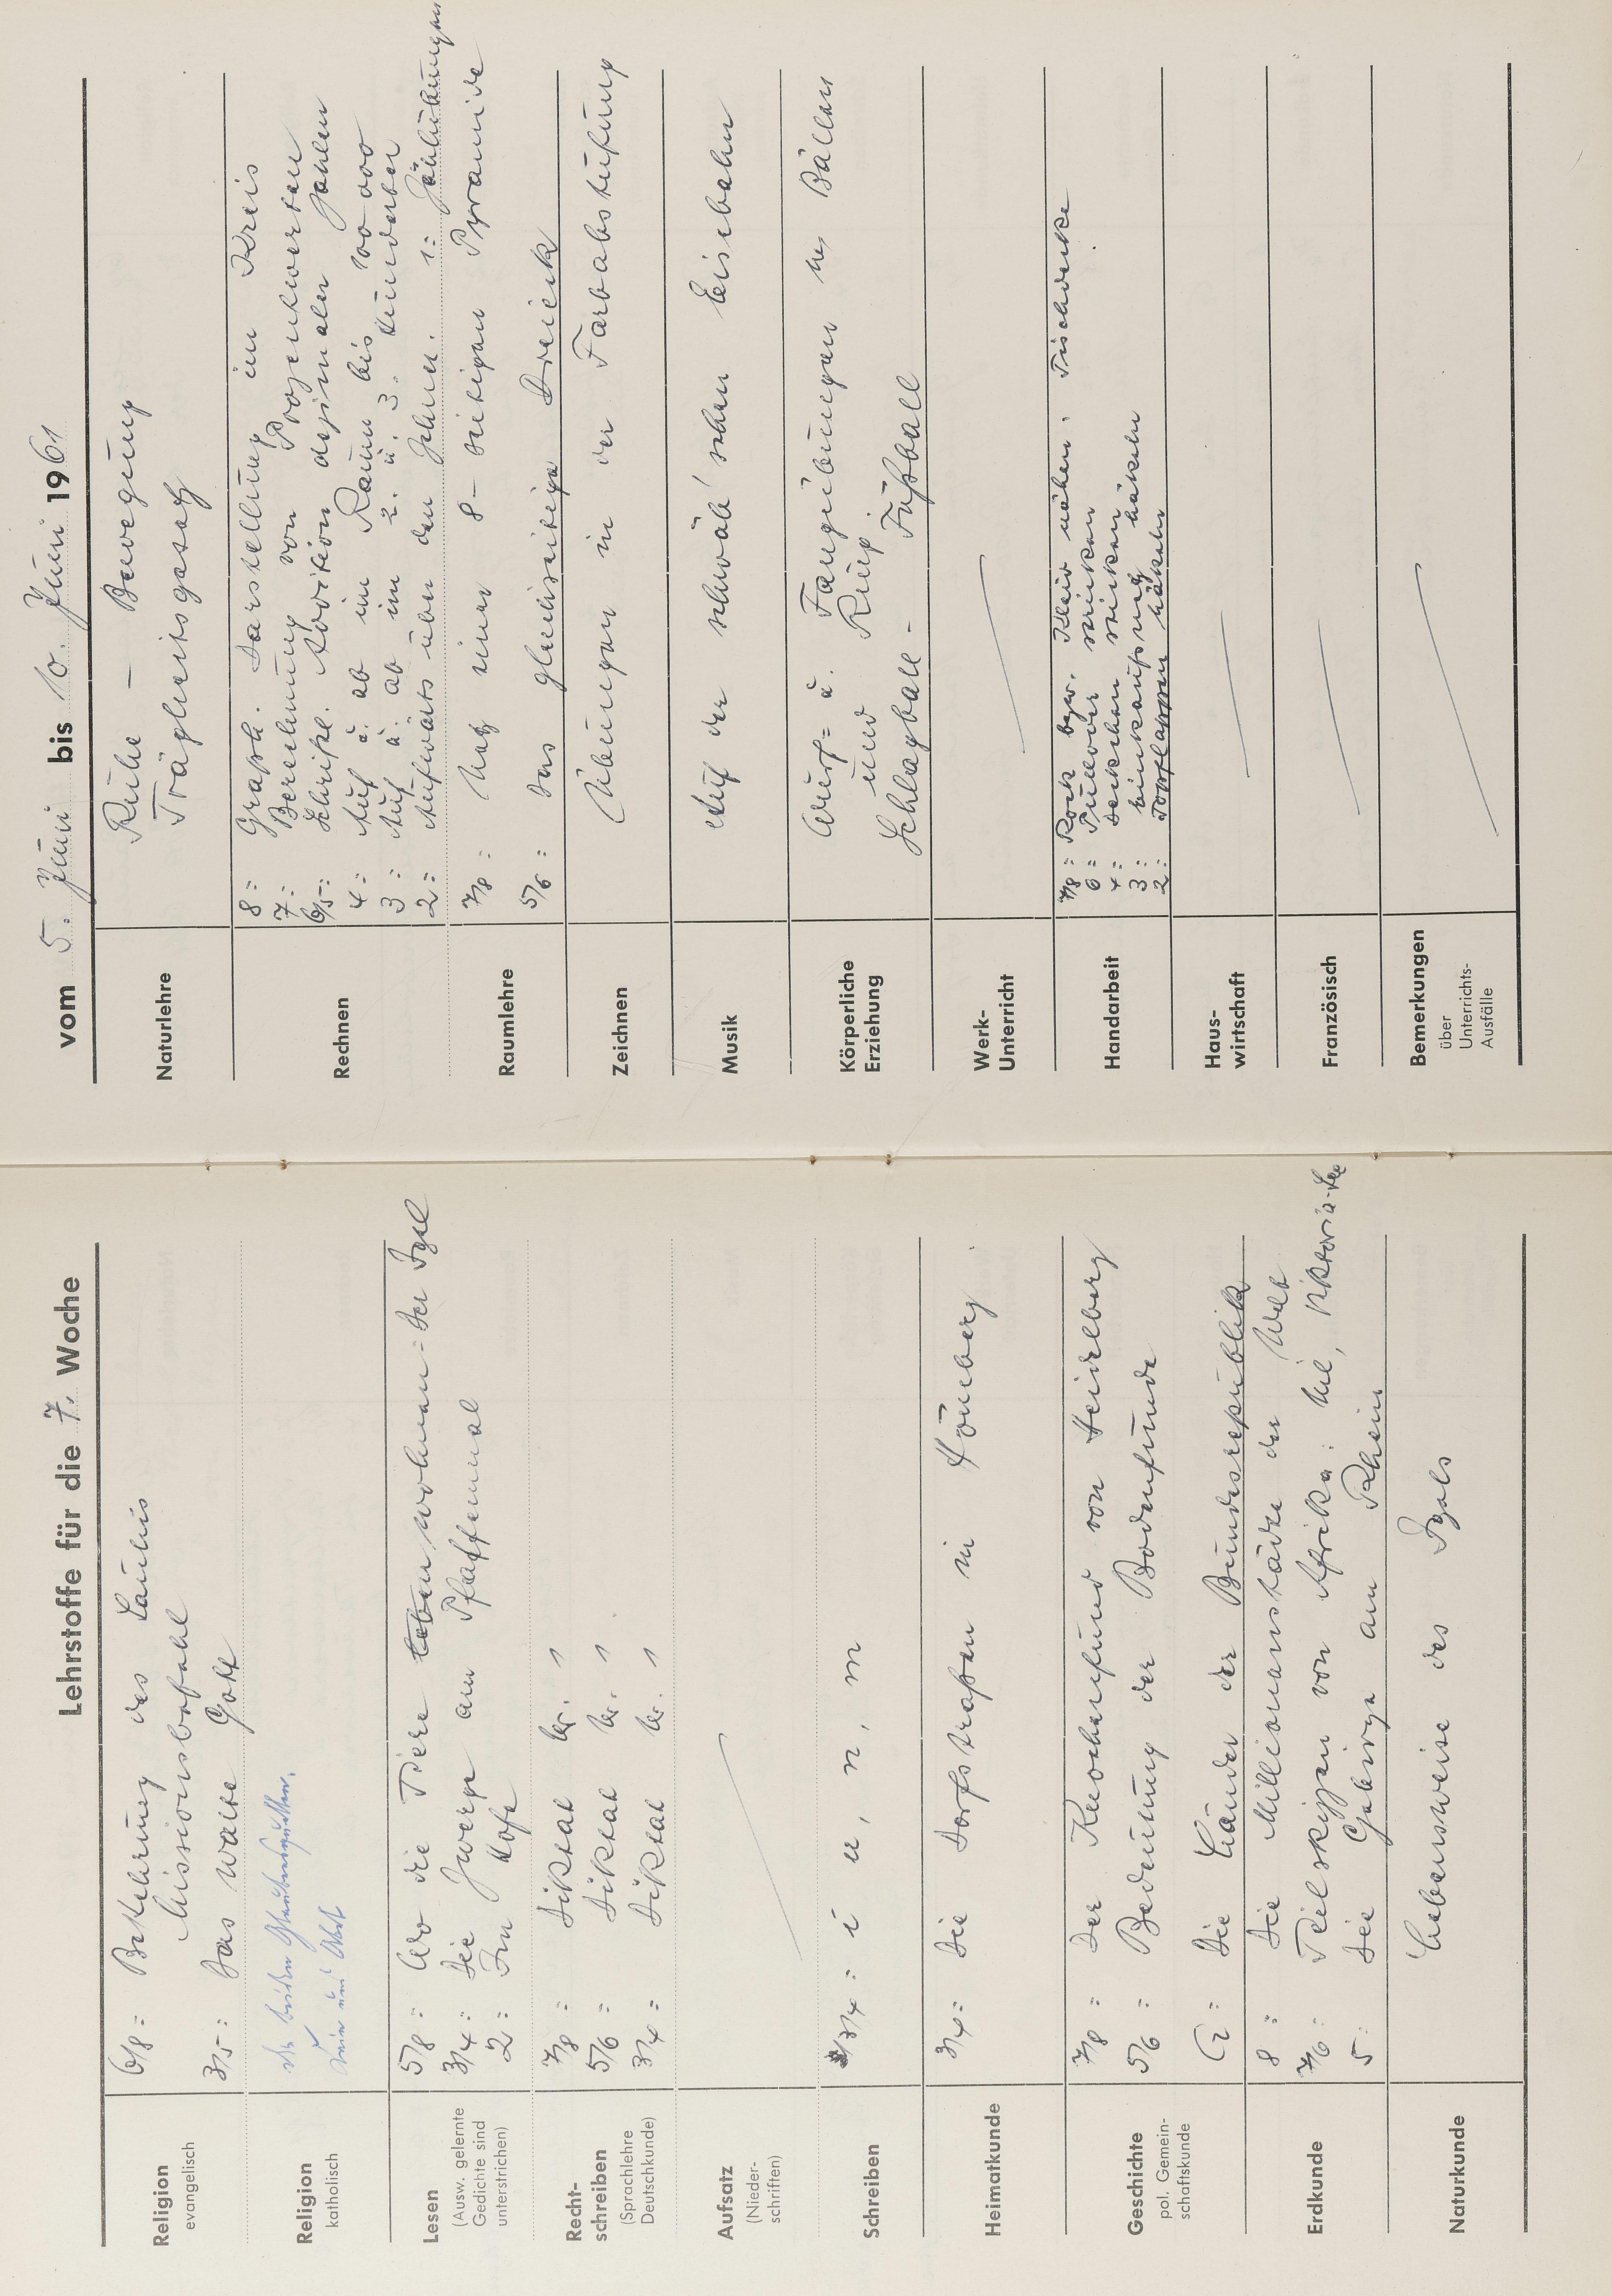 Lehrstoffe für die 7. Woche
Religion
evangelisch
6/8 = Bekehrung des Paulus
Missionsbefehl
3/5 = Das walte Gott
Religion
katholisch
Die beiden
Lesen
(Ausw. gelernte
Gedichte sind
unterstrichen)
5/8 = Wo die Tiere wohnen = Der Igel
3/4 = Die Zwerge am Pfaffennal
2 = Im Hofe
Recht-
schreiben
(Sprachlehre
Deutschkunde)
7/8 = Diktat Nr. 1
5/6 = Diktat Nr. 1
3/4 = Diktat Nr. 1
Aufsatz
(Nieder-
schriften)
Schreiben
3/4 = i u, n, m
Heimatkunde
3/4 = Die Dorfstraßen in
Geschichte
pol. Gemein-
schaftskunde
7/8 = Der Knochenfund von Heidelberg
5/6 = Bedeutung der Bodenfunde
G = Die Länder der Bundesrepublik
Erdkunde
8 = Die Millionenstädte der Welt
7/6 = Teilskizzen von Afrika: Nil, Viktoria-See
5 = Die Gebirge am Rhein
Naturkunde
Lebensweise des Igels
vom 5. Juni bis 10. Juni 1961
Naturlehre
Ruhe – Bewegung
Trägheitsgesetz
Rechnen
8 = Graph. Darstellung im Kreis
7 = Berechnung von Prozentwerten
6/5 = Schriftl. Addition dezimaler Zahlen
4 = Auf u. ab im Raum bis 100 000
3 = Auf u. ab im 2. u. 3. Hunderter
2 = Aufwärts über den Zehner. 1 = Zählübungen
Raumlehre
7/8 = Netz einer 8-seitigen Pyramide
5/6 = Das gleichseitige Dreieck
Zeichnen
Übungen in der Farbabstufung
Musik
Auf der schwäb'schen Eisebahn
Körperliche
Erziehung
Wurf= u. Fangübungen m. Bällen
und Ring
Schlagball - Fußball
Werk-
Unterricht
Handarbeit
7/8 = Rock bezw. Kleid nähen, Tischdecke
6 = Pullover stricken
4 = Deckchen sticken
3 = Einkaufsnetz häkeln
2 = Topflappen häkeln
Haus-
wirtschaft
Französisch
Bemerkungen
über
Unterrichts-
Ausfälle